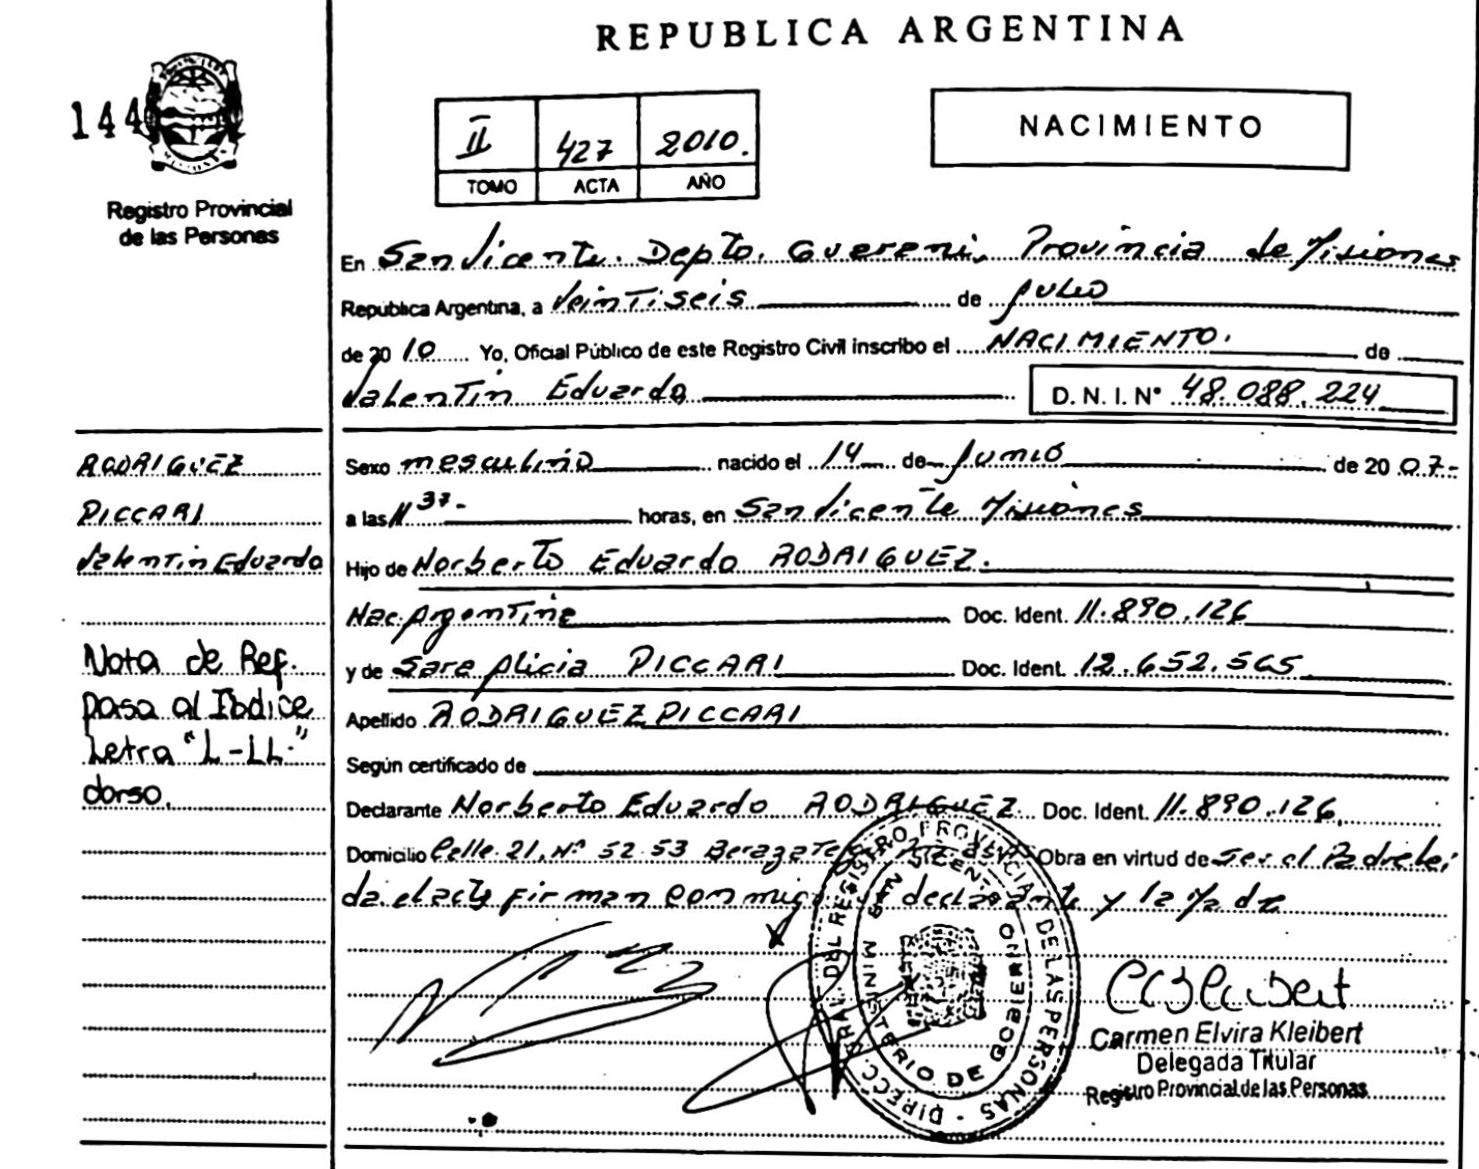 REPUBLICA ARGENTINA
144
Registro Provincial
de las Personas
II 427 2010.
TOMO ACTA AÑO
NACIMIENTO
En San Vicente. Depto. Guarani, Provincia de Misiones
República Argentina, a Veintiseis de Julio
de 2010 Yo, Oficial Público de este Registro Civil inscribo el NACIMIENTO. de
Valentin Eduardo D. N. I. Nº 48.088.224
RODRIGUEZ
PICCARI
Valentin Eduardo
Nota de Ref.
pasa al Indice
Letra "L-LL"
dorso.
Sexo masculino nacido el 14 de Junio de 2007-
a las 11 37- horas, en San Vicente Misiones
Hijo de Norberto Eduardo RODRIGUEZ.
Nac. Argentina Doc. Ident. 11.890.126
y de Sara Alicia PICCARI Doc. Ident. 12.652.565
Apellido RODRIGUEZ PICCARI
Según certificado de
Declarante Norberto Eduardo RODRIGUEZ Doc. Ident. 11.890.126
Domicilio Calle 21, Nº 52 53 Obra en virtud de Ser el Padre lei
da el acta firman conmigo declarante y la Madre
DIRECC. GRAL. DEL REGISTRO PROVINCIAL DE LAS PERSONAS
SAN VICENTE
MINISTERIO DE GOBIERNO
Carmen Elvira Kleibert
Delegada Titular
Registro Provincial de las Personas